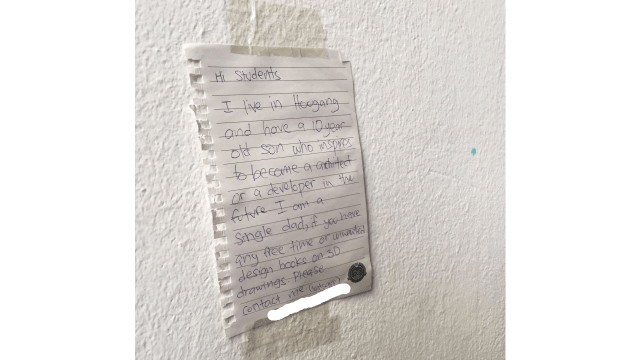 Hi Students
I live in Hougang
and have a 10 year
old son who inspires
to become a architect
or a developer in the
future I am a
single dad, if you have
any free time or unwanted
design books on 3D
drawings. Please
contact me